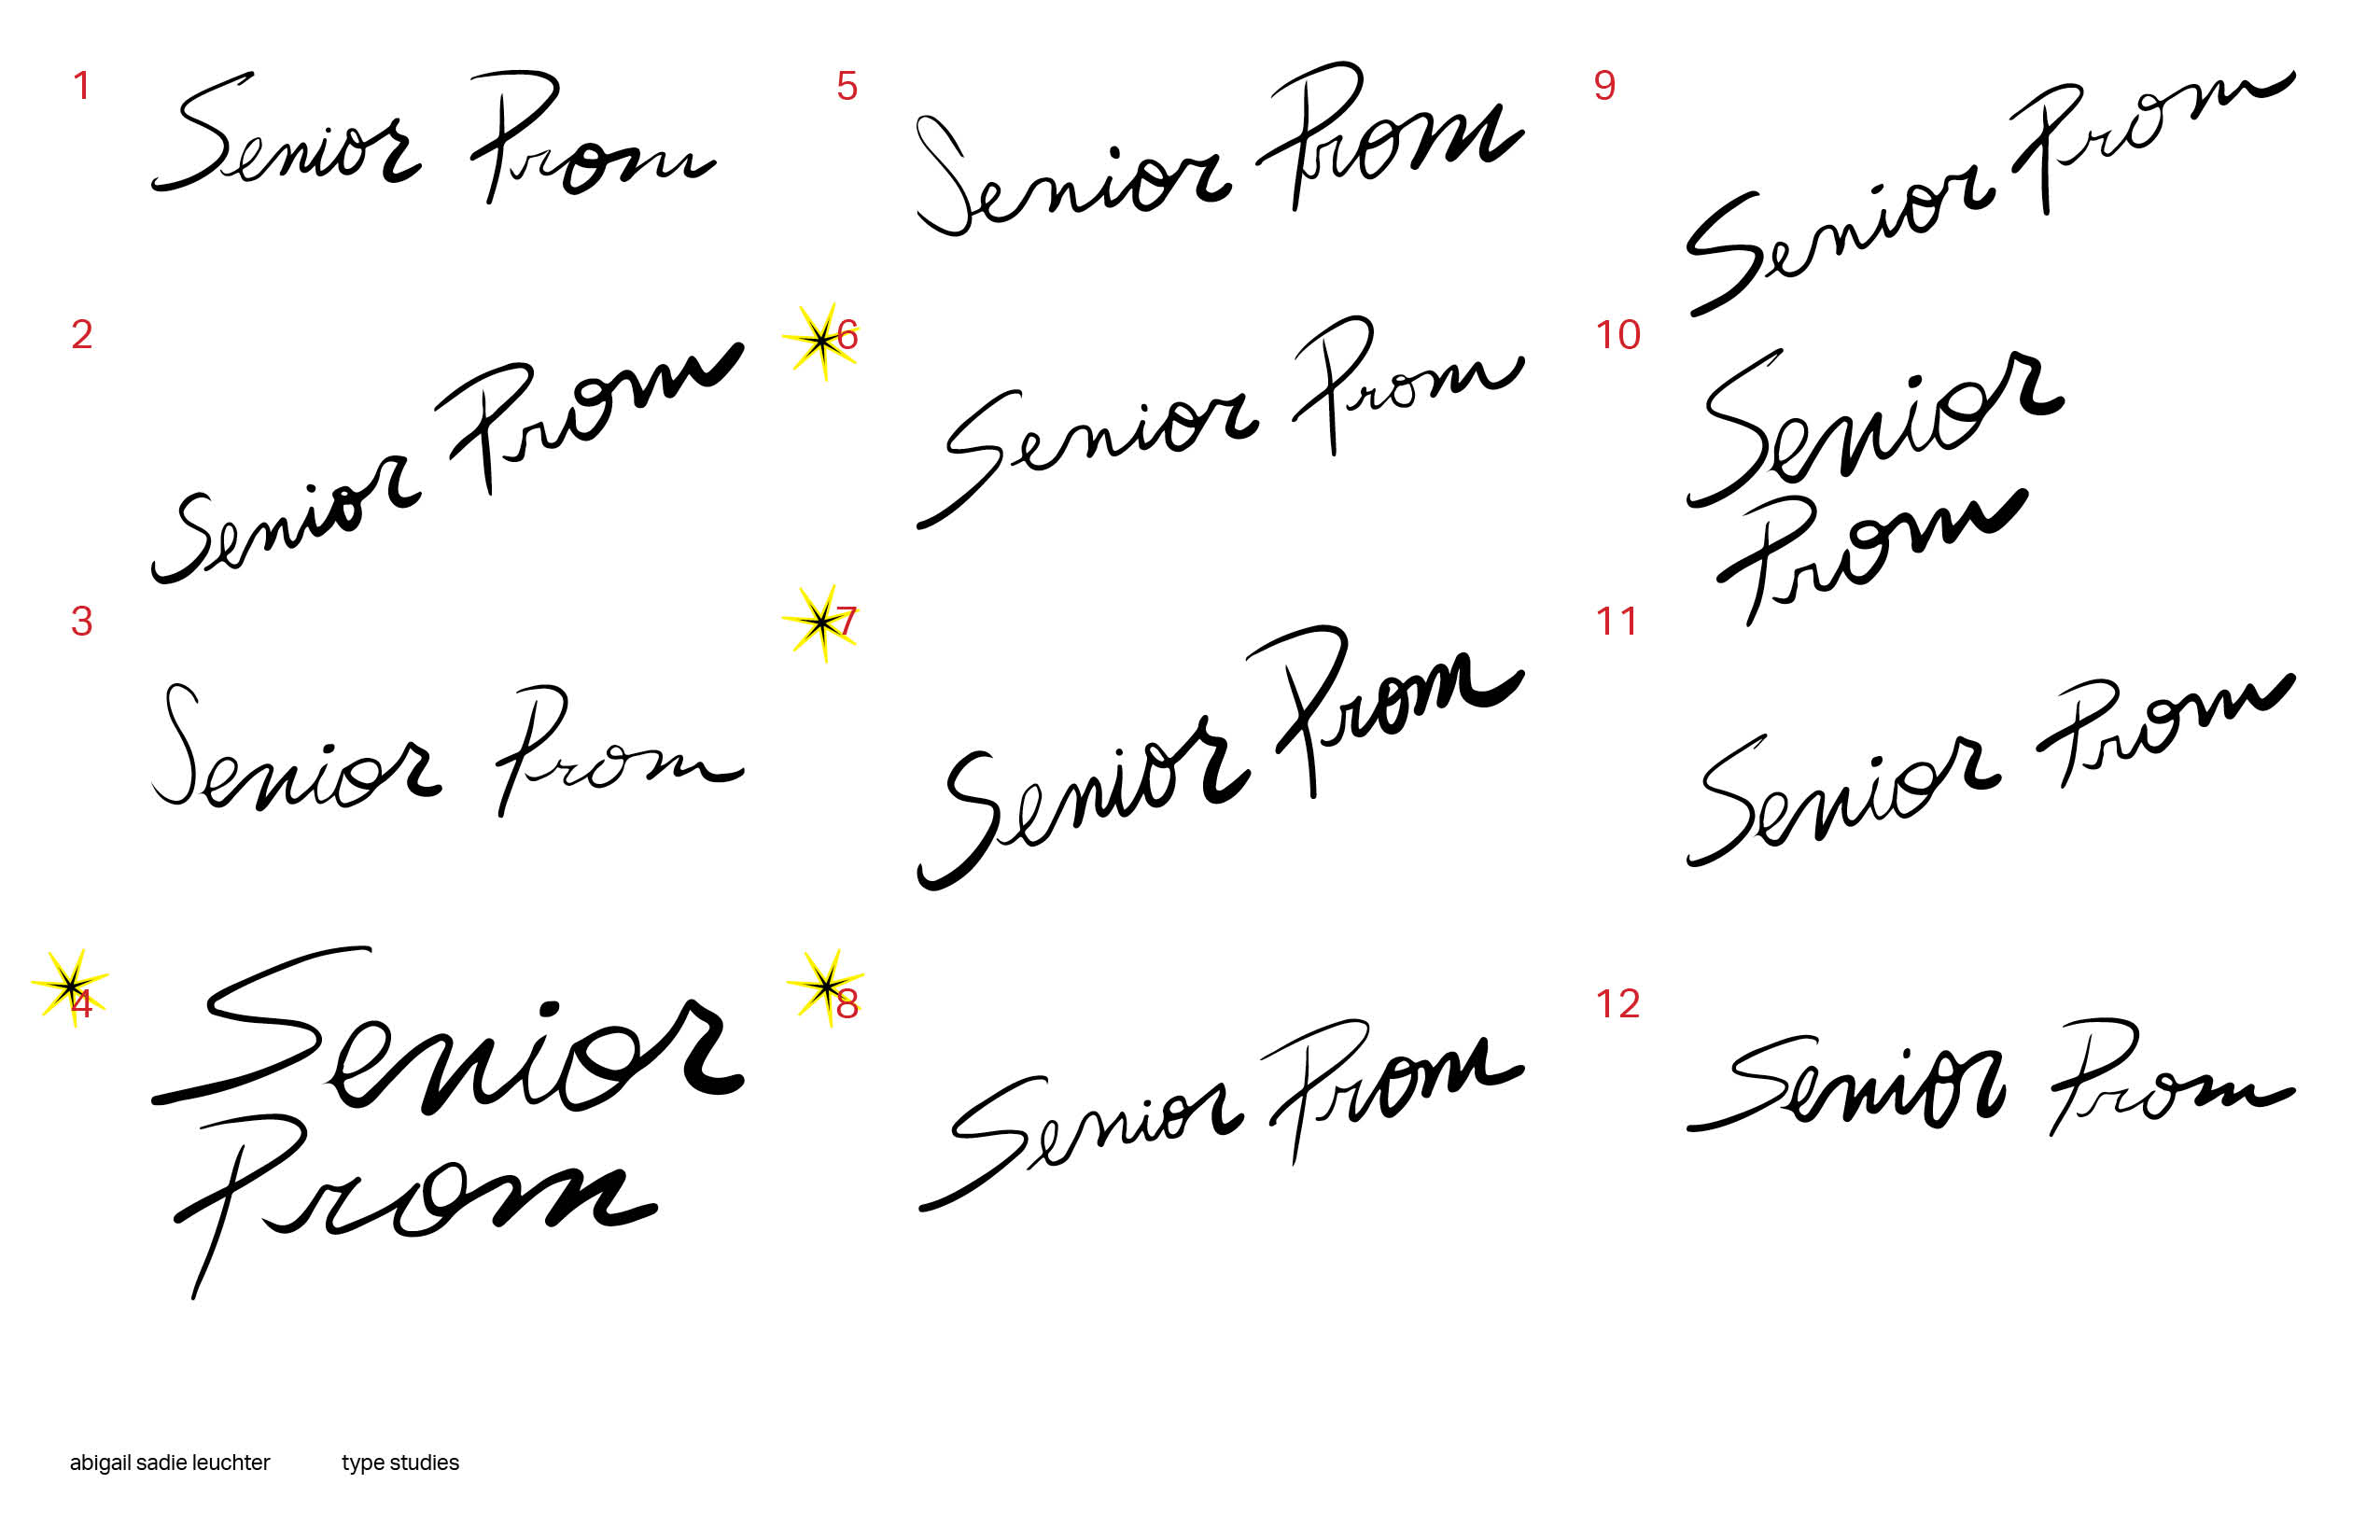 1
Senior Prom
2
Senior Prom
3
Senior Prom
4
Senior
Prom
5
Senior Prom
6
Senior Prom
7
Senior Prom
8
Senior Prom
9
Senior Prom
10
Senior
Prom
11
Senior Prom
12
Senior Prom
abigail sadie leuchter type studies